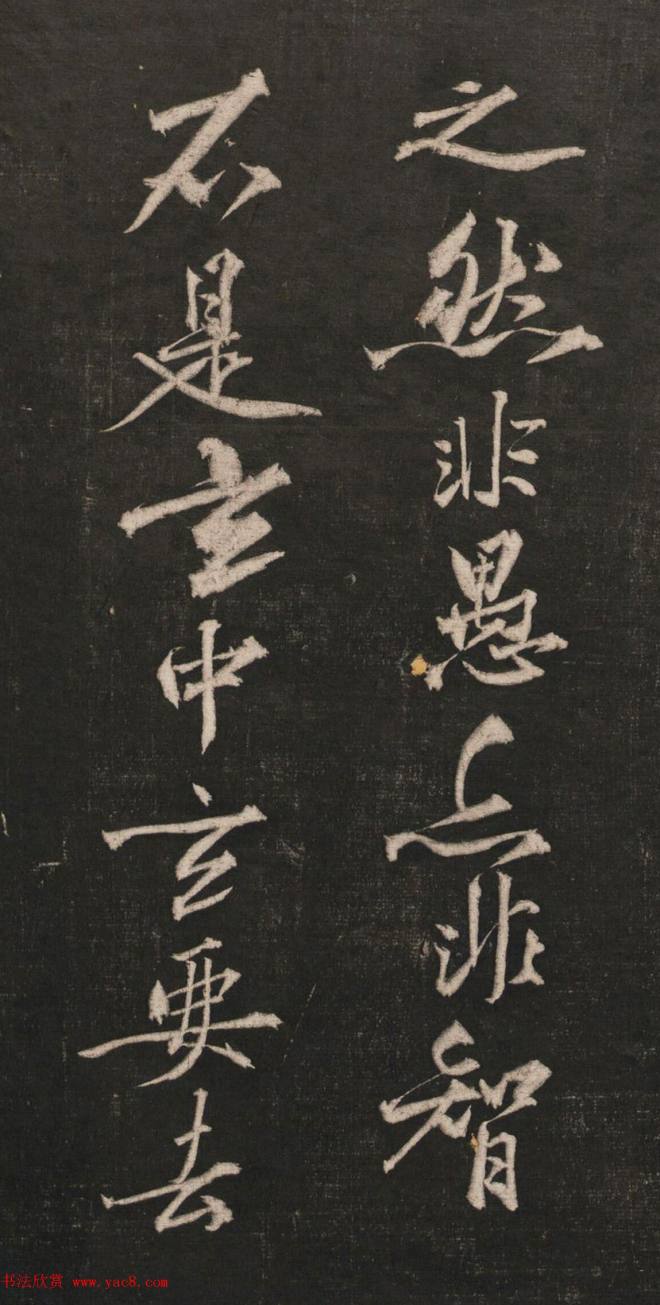 之然非愚点非智
不是玄中玄要去
书法欣赏 www.yac8.com